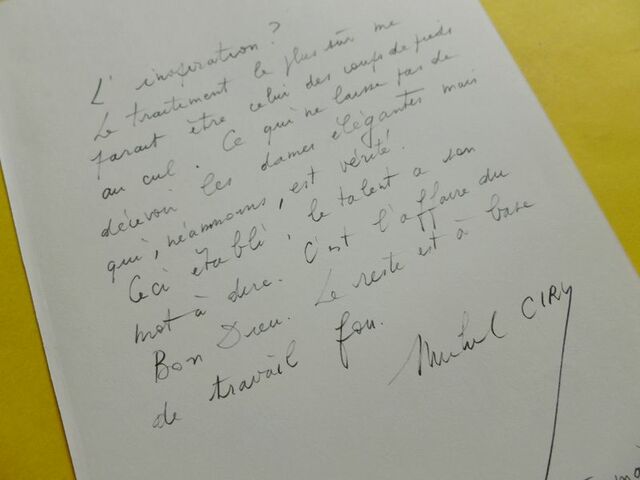 L'inspiration?
Le traitement le plus sûr me
parait être celui des coups de pieds
au cul. Ce qui ne laisse pas de
décevoir les dames élégantes mais
qui, néammoins, est vérité!
Ceci établi, le talent a son
mot à dire. C'est l'affaire du
Bon Dieu. Le reste est à base
de travail fou.
Michel CIRY